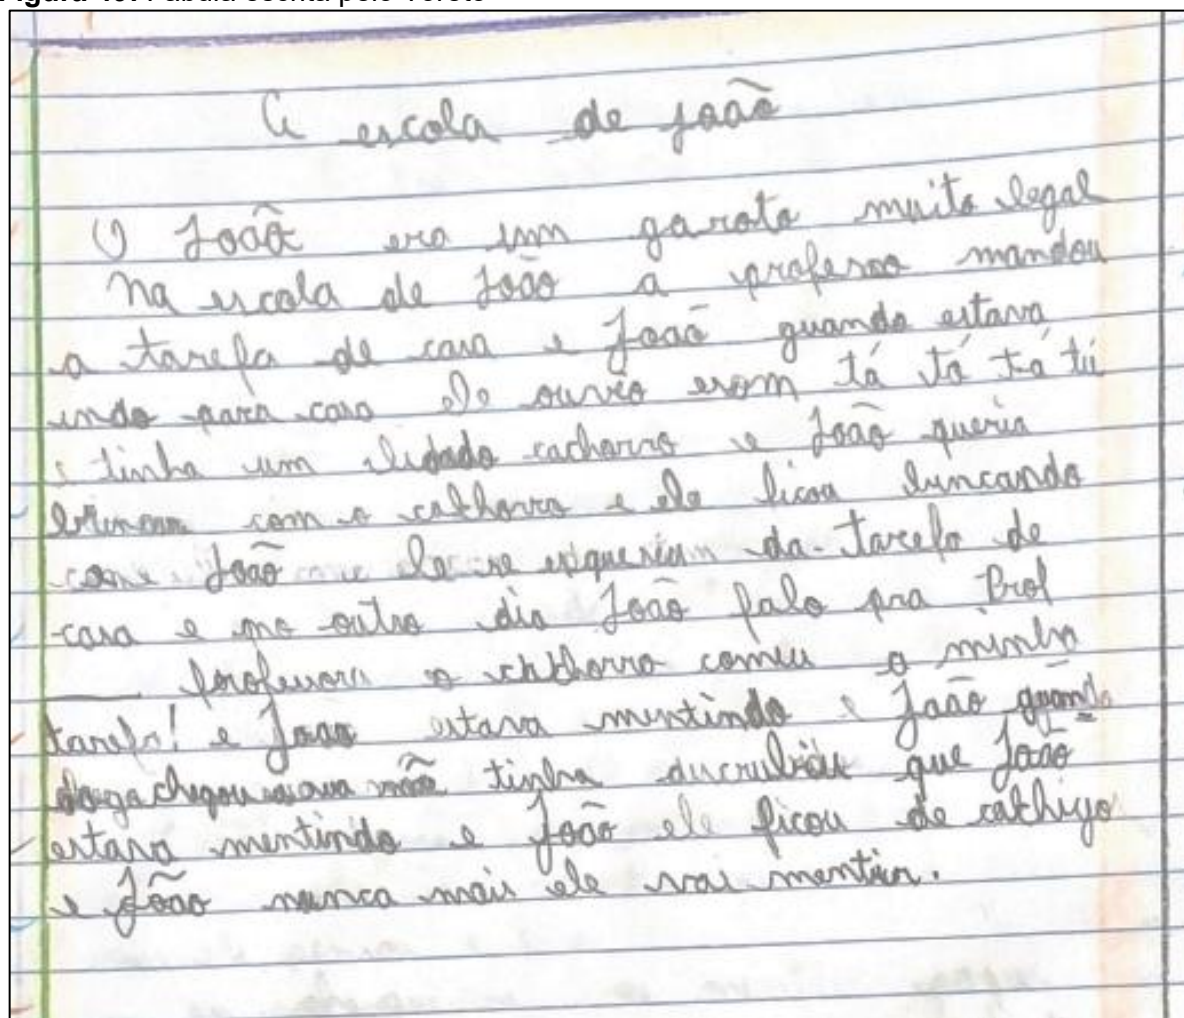 A escola de joão
O João era um garoto muito legal
na escola de João a profesoa mandou
a tarefa de casa e João quando estava
indo para casa ele ouviu esom tá tá tá tú
e tinha um cachorro e João queria
brincar com o cathorro e ele ficou brincando
com João e ele se esqueseu da tarefa de
casa e no outro dia João falo pra Prof
___ professora o cathorro comeu a minha
tarefa! e João estava mentindo e João quando
chegou sua mãe tinha discubriu que João
estava mentindo e João ele ficou de cathigo
e João nunca mais ele vai mentir.